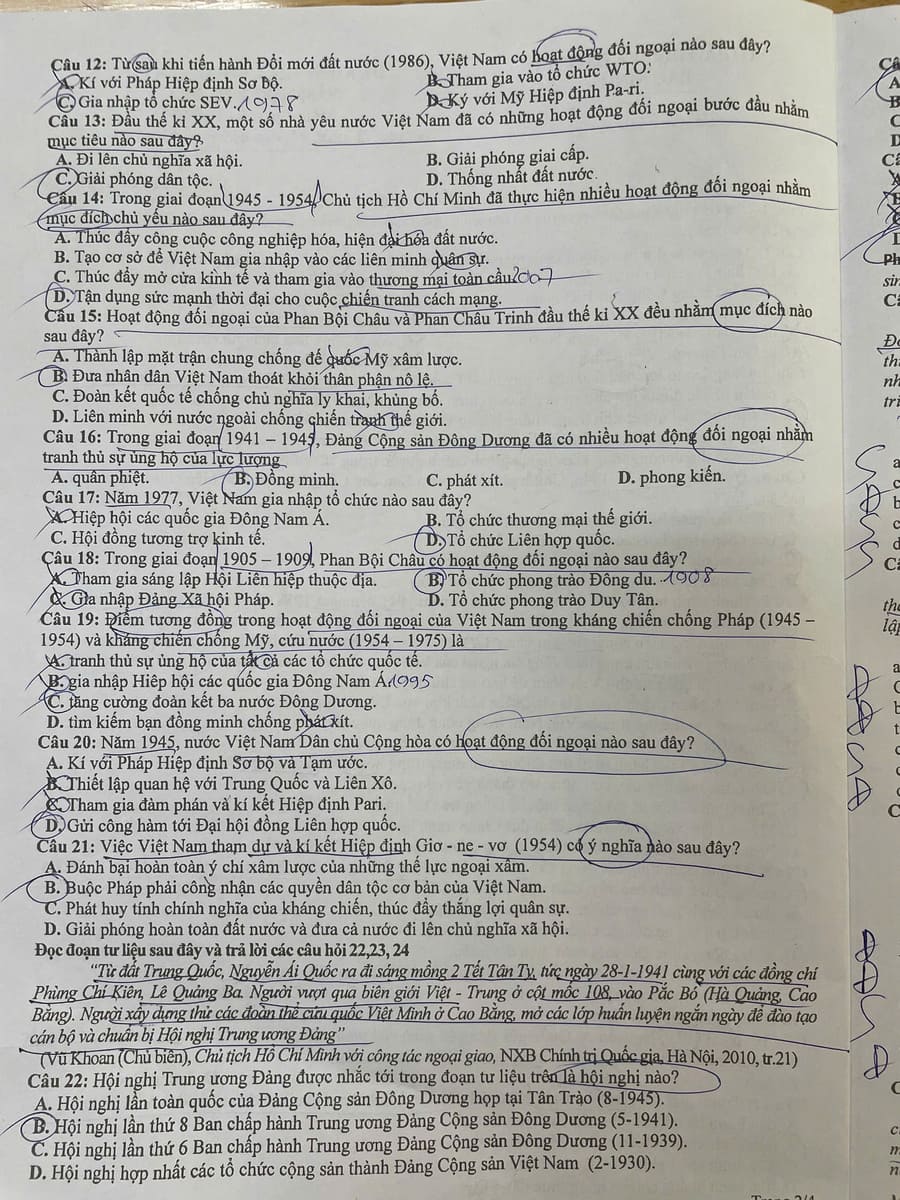 Câu 12: Từ sau khi tiến hành Đổi mới đất nước (1986), Việt Nam có hoạt động đối ngoại nào sau đây?
A. Kí với Pháp Hiệp định Sơ bộ. B. Tham gia vào tổ chức WTO.
C. Gia nhập tổ chức SEV. 1978 D. Ký với Mỹ Hiệp định Pa-ri.
Câu 13: Đầu thế kỉ XX, một số nhà yêu nước Việt Nam đã có những hoạt động đối ngoại bước đầu nhằm
mục tiêu nào sau đây?
A. Đi lên chủ nghĩa xã hội. B. Giải phóng giai cấp.
C. Giải phóng dân tộc. D. Thống nhất đất nước.
Câu 14: Trong giai đoạn 1945 - 1954, Chủ tịch Hồ Chí Minh đã thực hiện nhiều hoạt động đối ngoại nhằm
mục đích chủ yếu nào sau đây?
A. Thúc đẩy công cuộc công nghiệp hóa, hiện đại hóa đất nước.
B. Tạo cơ sở để Việt Nam gia nhập vào các liên minh quân sự.
C. Thúc đẩy mở cửa kinh tế và tham gia vào thương mại toàn cầu. 2007
D. Tận dụng sức mạnh thời đại cho cuộc chiến tranh cách mạng.
Câu 15: Hoạt động đối ngoại của Phan Bội Châu và Phan Châu Trinh đầu thế kỉ XX đều nhằm mục đích nào
sau đây?
A. Thành lập mặt trận chung chống đế quốc Mỹ xâm lược.
B. Đưa nhân dân Việt Nam thoát khỏi thân phận nô lệ.
C. Đoàn kết quốc tế chống chủ nghĩa ly khai, khủng bố.
D. Liên minh với nước ngoài chống chiến tranh thế giới.
Câu 16: Trong giai đoạn 1941 – 1945, Đảng Cộng sản Đông Dương đã có nhiều hoạt động đối ngoại nhằm
tranh thủ sự ủng hộ của lực lượng
A. quân phiệt. B. Đồng minh. C. phát xít. D. phong kiến.
Câu 17: Năm 1977, Việt Nam gia nhập tổ chức nào sau đây?
A. Hiệp hội các quốc gia Đông Nam Á. B. Tổ chức thương mại thế giới.
C. Hội đồng tương trợ kinh tế. D. Tổ chức Liên hợp quốc.
Câu 18: Trong giai đoạn 1905 – 1909, Phan Bội Châu có hoạt động đối ngoại nào sau đây?
A. Tham gia sáng lập Hội Liên hiệp thuộc địa. B. Tổ chức phong trào Đông du. 1908
C. Gia nhập Đảng Xã hội Pháp. D. Tổ chức phong trào Duy Tân.
Câu 19: Điểm tương đồng trong hoạt động đối ngoại của Việt Nam trong kháng chiến chống Pháp (1945 –
1954) và kháng chiến chống Mỹ, cứu nước (1954 – 1975) là
A. tranh thủ sự ủng hộ của tất cả các tổ chức quốc tế.
B. gia nhập Hiệp hội các quốc gia Đông Nam Á. 1995
C. tăng cường đoàn kết ba nước Đông Dương.
D. tìm kiếm bạn đồng minh chống phát xít.
Câu 20: Năm 1945, nước Việt Nam Dân chủ Cộng hòa có hoạt động đối ngoại nào sau đây?
A. Kí với Pháp Hiệp định Sơ bộ và Tạm ước.
B. Thiết lập quan hệ với Trung Quốc và Liên Xô.
C. Tham gia đàm phán và kí kết Hiệp định Pari.
D. Gửi công hàm tới Đại hội đồng Liên hợp quốc.
Câu 21: Việc Việt Nam tham dự và kí kết Hiệp định Giơ - ne - vơ (1954) có ý nghĩa nào sau đây?
A. Đánh bại hoàn toàn ý chí xâm lược của những thế lực ngoại xâm.
B. Buộc Pháp phải công nhận các quyền dân tộc cơ bản của Việt Nam.
C. Phát huy tính chính nghĩa của kháng chiến, thúc đẩy thắng lợi quân sự.
D. Giải phóng hoàn toàn đất nước và đưa cả nước đi lên chủ nghĩa xã hội.
Đọc đoạn tư liệu sau đây và trả lời các câu hỏi 22,23, 24
"Từ đất Trung Quốc, Nguyễn Ái Quốc ra đi sáng mồng 2 Tết Tân Tỵ, tức ngày 28-1-1941 cùng với các đồng chí
Phùng Chí Kiên, Lê Quảng Ba. Người vượt qua biên giới Việt - Trung ở cột mốc 108, vào Pắc Bó (Hà Quảng, Cao
Bằng). Người xây dựng thử các đoàn thể cứu quốc Việt Minh ở Cao Bằng, mở các lớp huấn luyện ngắn ngày để đào tạo
cán bộ và chuẩn bị Hội nghị Trung ương Đảng"
(Vũ Khoan (Chủ biên), Chủ tịch Hồ Chí Minh với công tác ngoại giao, NXB Chính trị Quốc gia, Hà Nội, 2010, tr.21)
Câu 22: Hội nghị Trung ương Đảng được nhắc tới trong đoạn tư liệu trên là hội nghị nào?
A. Hội nghị lần toàn quốc của Đảng Cộng sản Đông Dương họp tại Tân Trào (8-1945).
B. Hội nghị lần thứ 8 Ban chấp hành Trung ương Đảng Cộng sản Đông Dương (5-1941).
C. Hội nghị lần thứ 6 Ban chấp hành Trung ương Đảng Cộng sản Đông Dương (11-1939).
D. Hội nghị hợp nhất các tổ chức cộng sản thành Đảng Cộng sản Việt Nam (2-1930).